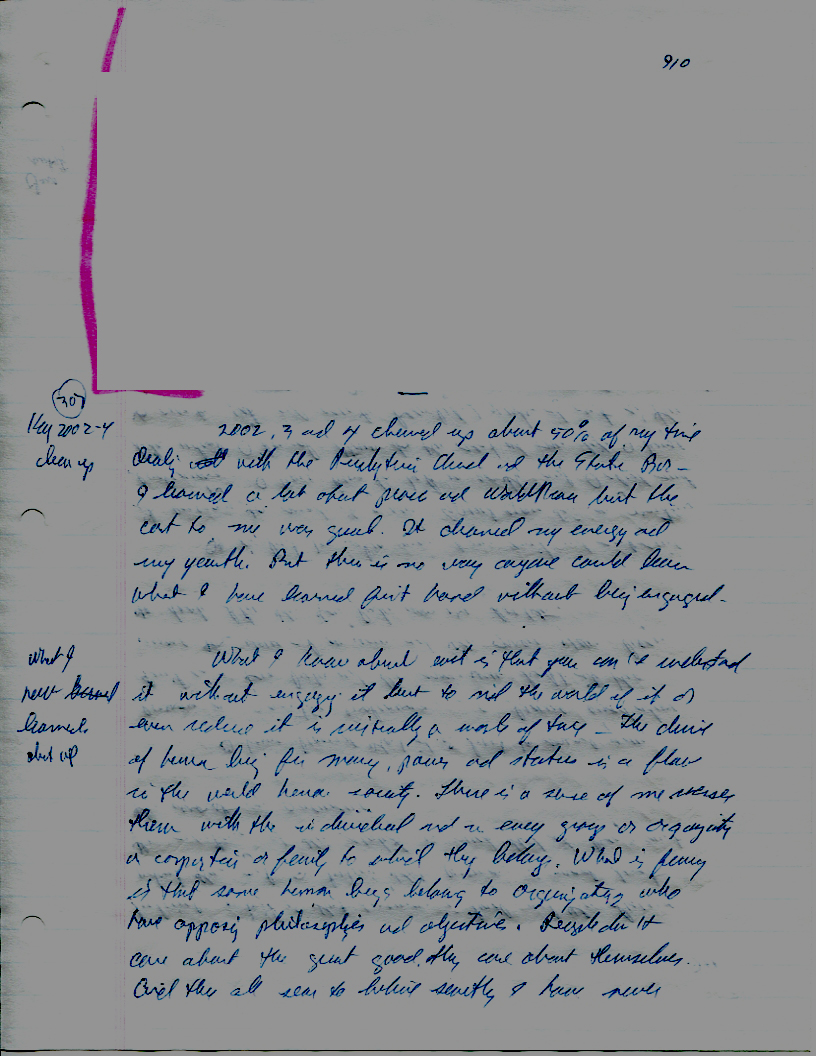 910
30
May 2002-4
chew up
2002, 3 and 4 chewed up about 50% of my time
with the Church and the State Bar -
I learned a lot about and but the
cost to me was great. It chewed my energy and
my youth. But there is no way anyone could learn
what I have learned first hand without being engaged.
What I
now learned
about evil
What I know about evil is that you can't understand
it without engaging it but to rid the world of it or
even reduce it is virtually a work of . The desire
of human being for money, power and status is a flaw
in the world human society. There is a sense of me verses
them with the individual and in every group or organization
or corporation or family to which they belong. What is funny
is that some human beings belong to organizations who
have opposing philosophies and objectives. People don't
care about the great good, they care about themselves.
And they all seem to believe I have never